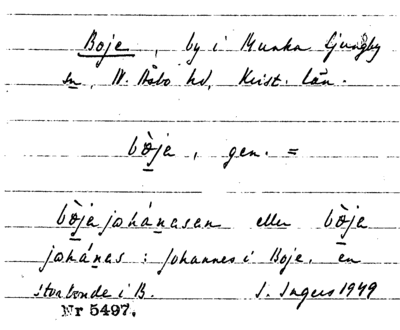 Boje, by i Munka Ljungby
sn, N. Åsbo hd, Krist. län.
bò̱ja, gen. =
bò̱jajohánasan eller bò̱ja
johánas: Johannes i Boje, en
storbonde i B. I. Ingers 1949
Nr 5497.